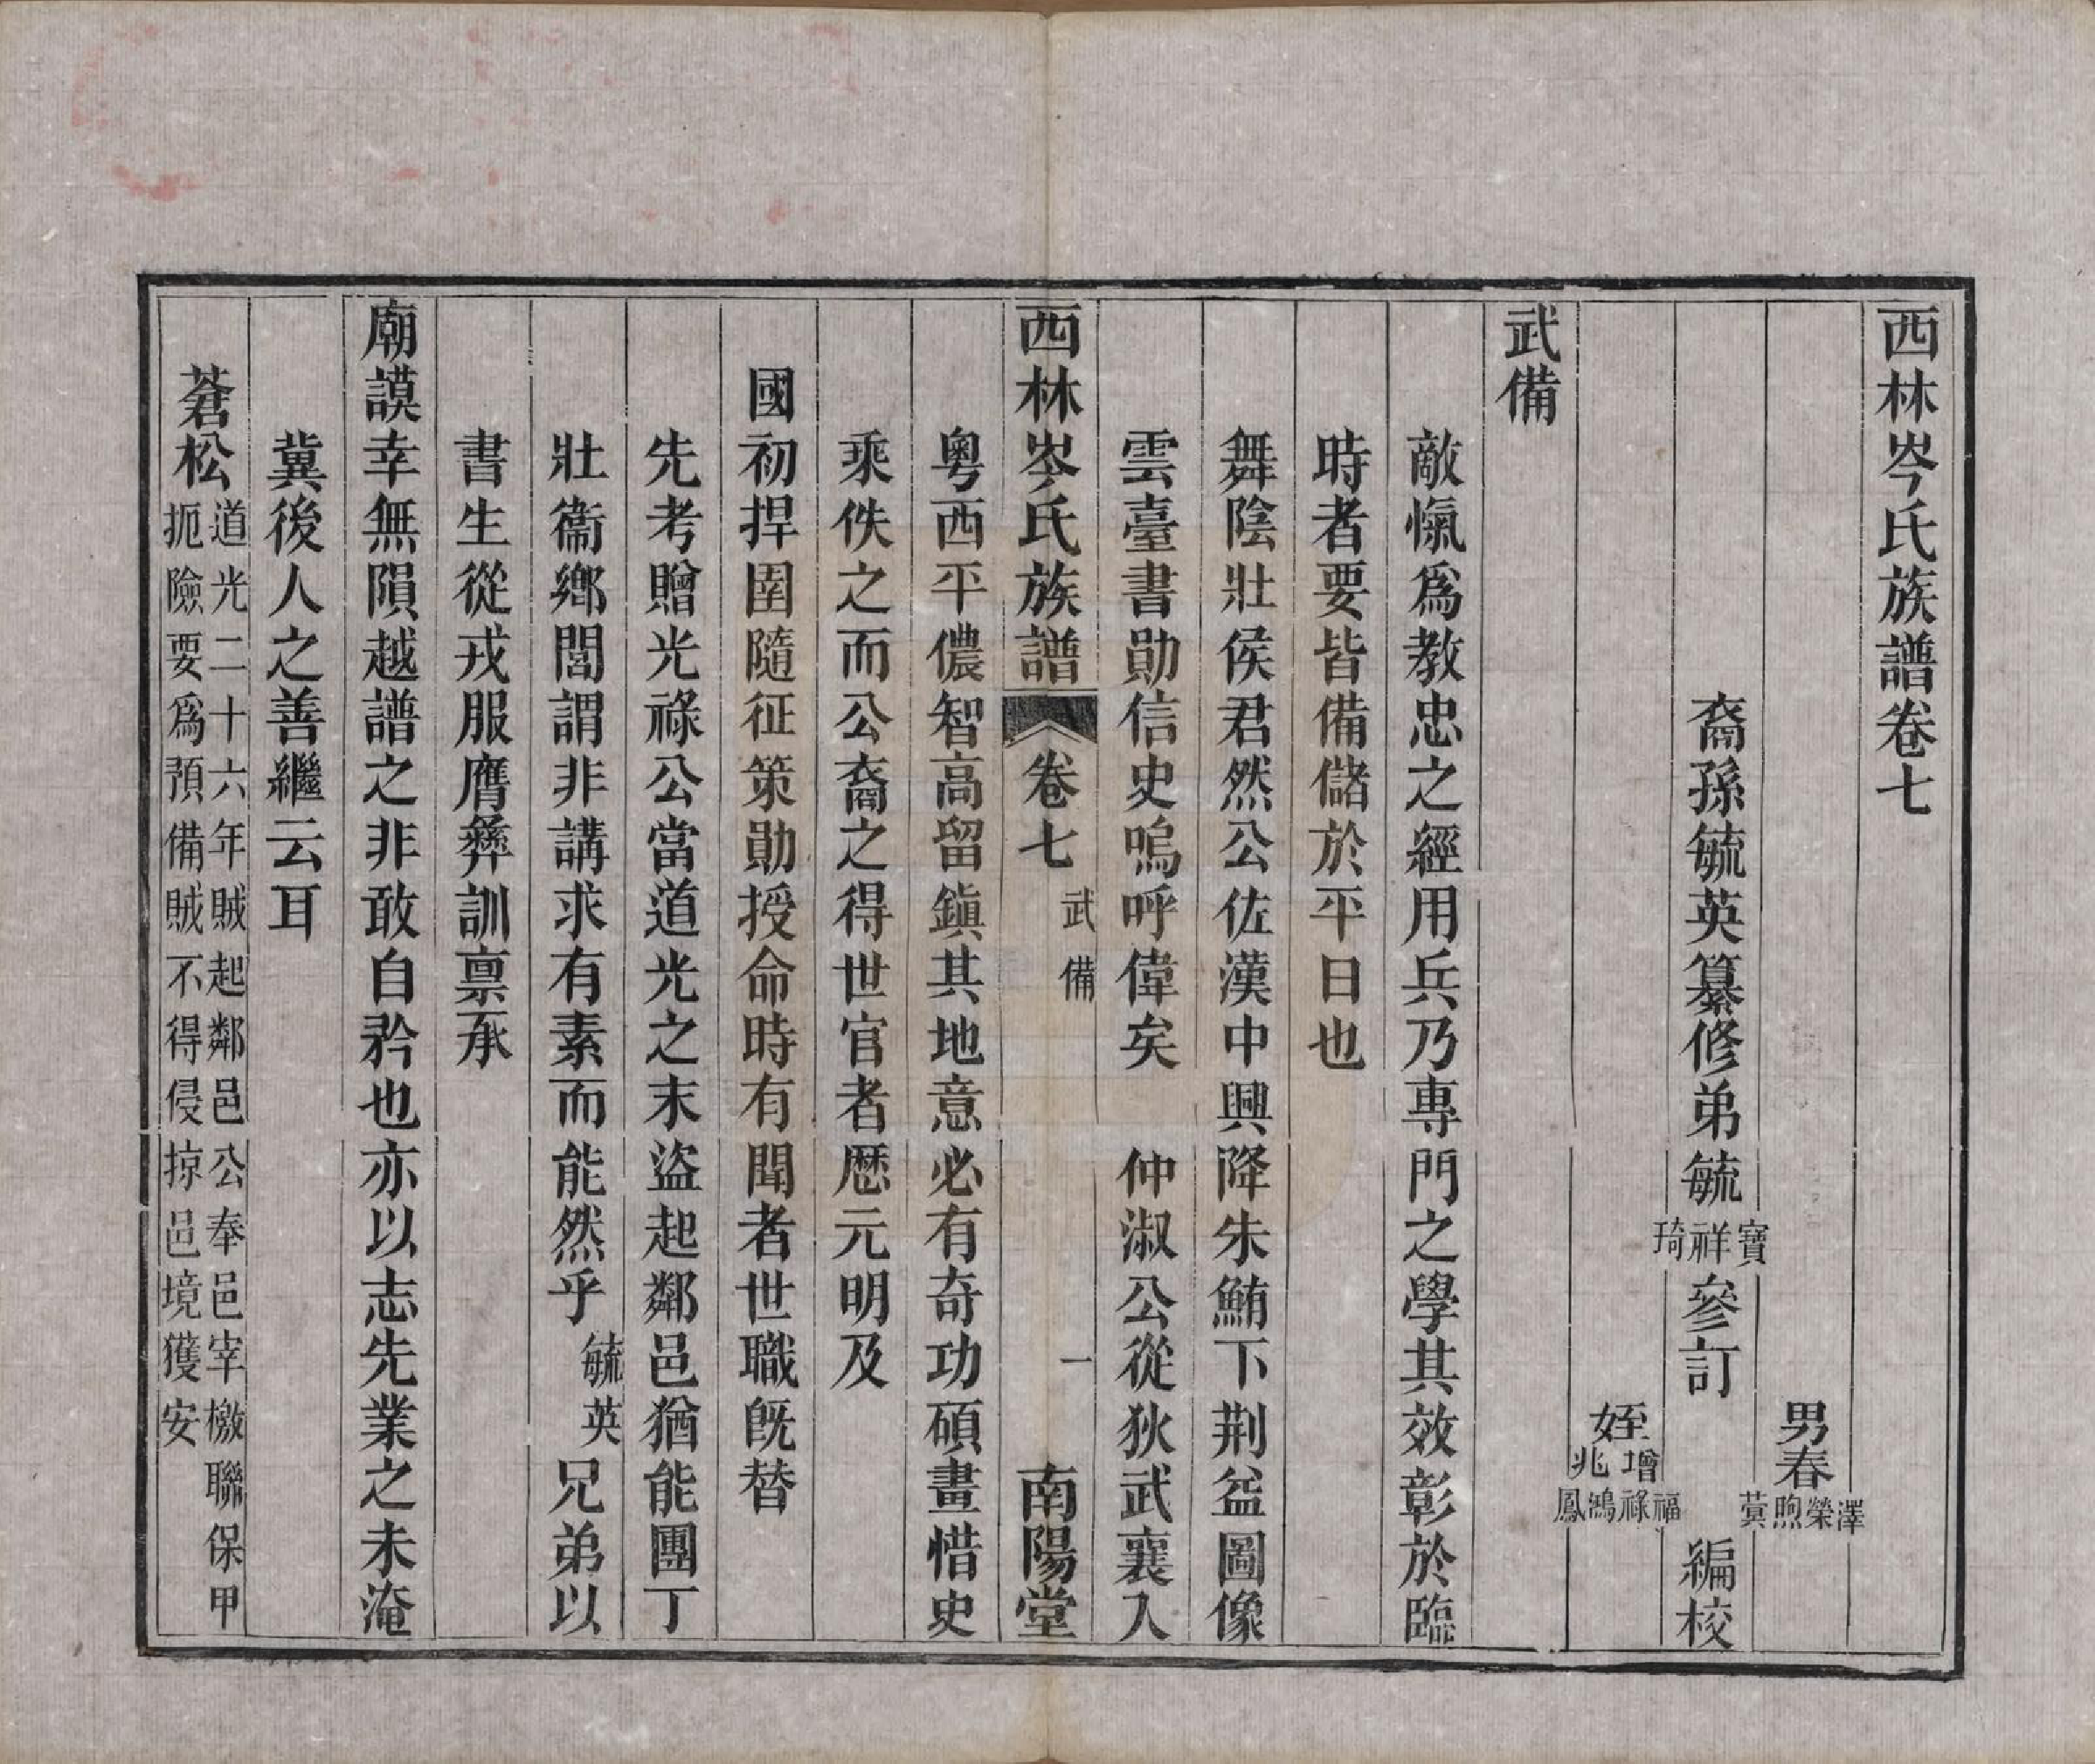 西林岑氏族譜卷七
男春澤榮煦蓂
裔孫毓英纂修弟毓寶祥琦參訂 編校
姪增福祿兆鴻鳳
武備
敵愾爲教忠之經用兵乃專門之學其效彰於臨
時者要皆備儲於平日也
舞陰壯侯君然公佐漢中興降朱鮪下荆益圖像
雲臺書勛信史嗚呼偉矣 仲淑公從狄武襄入
西林岑氏族譜 卷七 武備 一 南陽堂
粵西平儂智高留鎭其地意必有奇功碩畫惜史
乘佚之而公裔之得世官者歷元明及
國初捍圉隨征策勛授命時有聞者世職旣替
先考贈光祿公當道光之末盜起鄰邑猶能團丁
壯衞鄉閭謂非講求有素而能然乎毓英兄弟以
書生從戎服膺彝訓禀承
廟謨幸無隕越譜之非敢自矜也亦以志先業之未淹
冀後人之善繼云耳
蒼松道光二十六年賊起鄰邑公奉邑宰檄聯保甲
扼險要爲預備賊不得侵掠邑境獲安